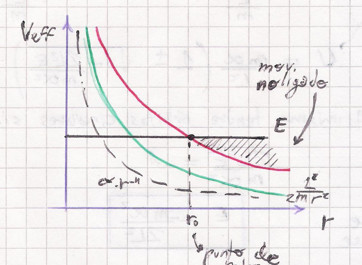 Veff
mov.
no ligado
E
α r⁻ⁿ
L²
2mr²
r
r₀
punto de